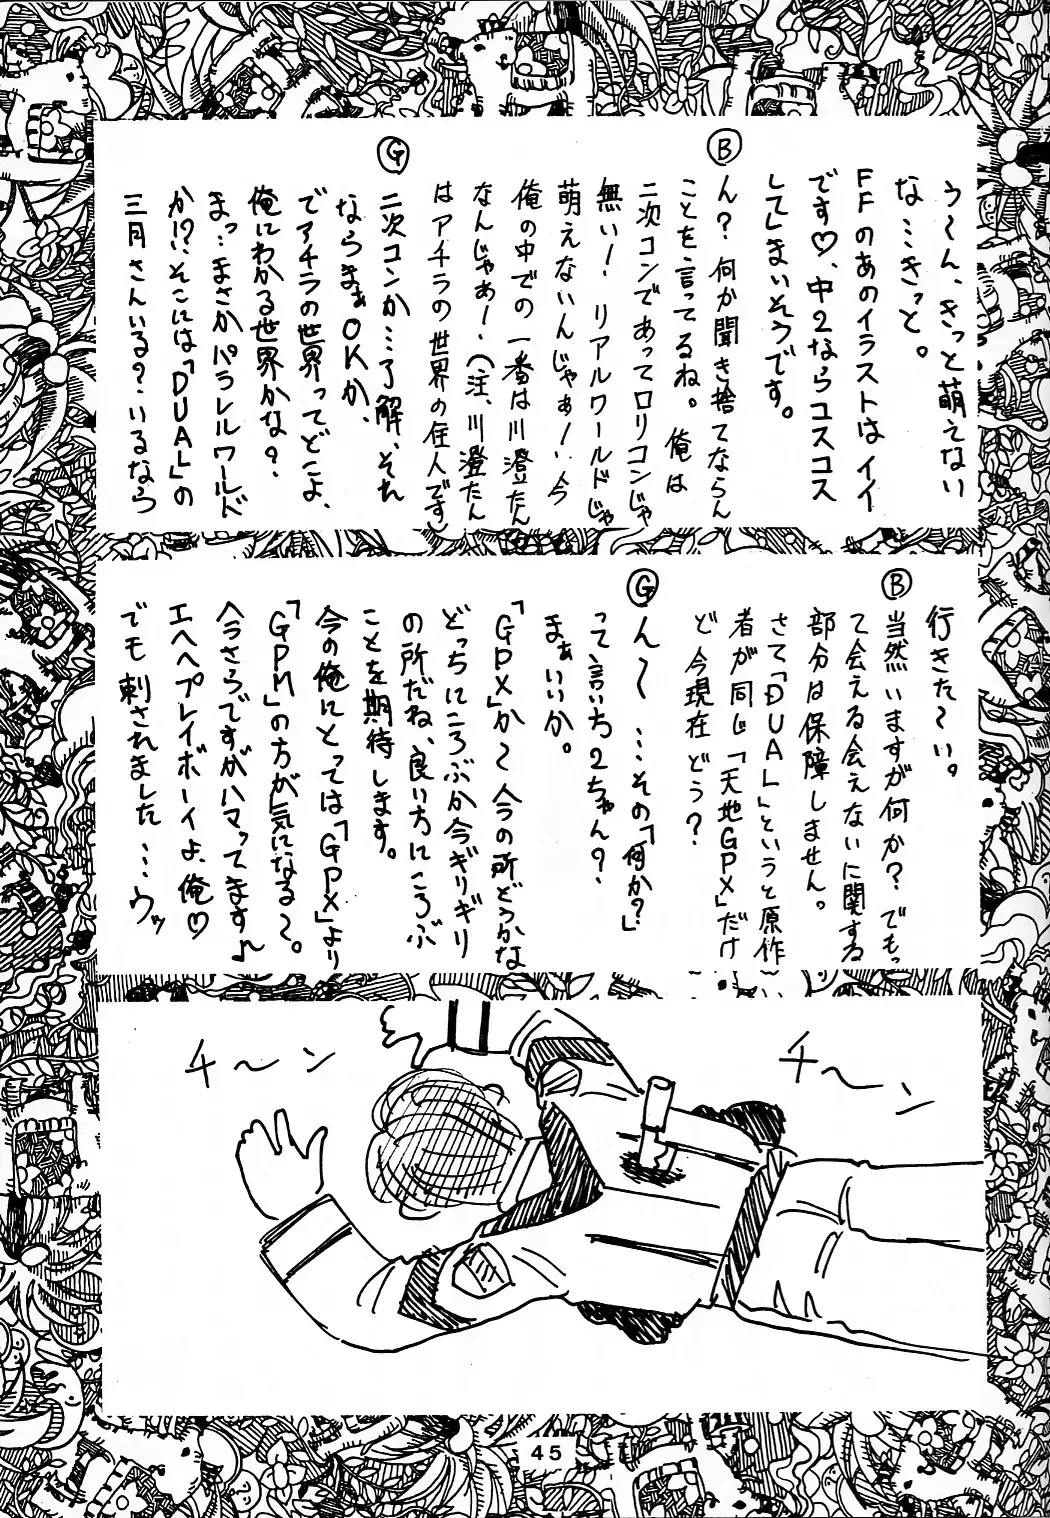 う〜ん、きっと萌えない
な…きっと。
FFのあのイラストはイイ
です♡、中2ならコスコス
してしまいそうです。
Ⓑ ん？何か聞き捨てならん
ことを言ってるね。俺は
二次コンであってロリコンじゃ
無い！リアルワールドじゃ
萌えないんじゃぁ！今
俺の中での一番は川澄たん
なんじゃあ！（注、川澄たん
はアチラの世界の住人です）
Ⓖ 二次コンか…了解、それ
ならまぁOKか、
でアチラの世界ってどこよ、
俺にわかる世界かな？
まっ、まさかパラレルワールド
か!?、そこには「DUAL」の
三月さんいる？いるなら
行きた〜い。
Ⓑ 当然いますが何か？でもっ
て会える会えないに関する
部分は保障しません。
さて「DUAL」というと原作
者が同じ「天地GPX」だけ
ど今現在どう？
Ⓖ ん〜…その「何か？」
って言い方2ちゃん？
まぁいいか。
「GPX」か〜今の所どうかな〜
どっちにころぶか今ギリギリ
の所だね、良い方にころぶ
ことを期待します。
今の俺にとっては「GPX」より
「GPM」の方が気になる〜。
今さらですがハマってます♪
エヘヘプレイボーイよ、俺♡
でモ刺されました…ウッ
チ〜ン
チ〜ン
45